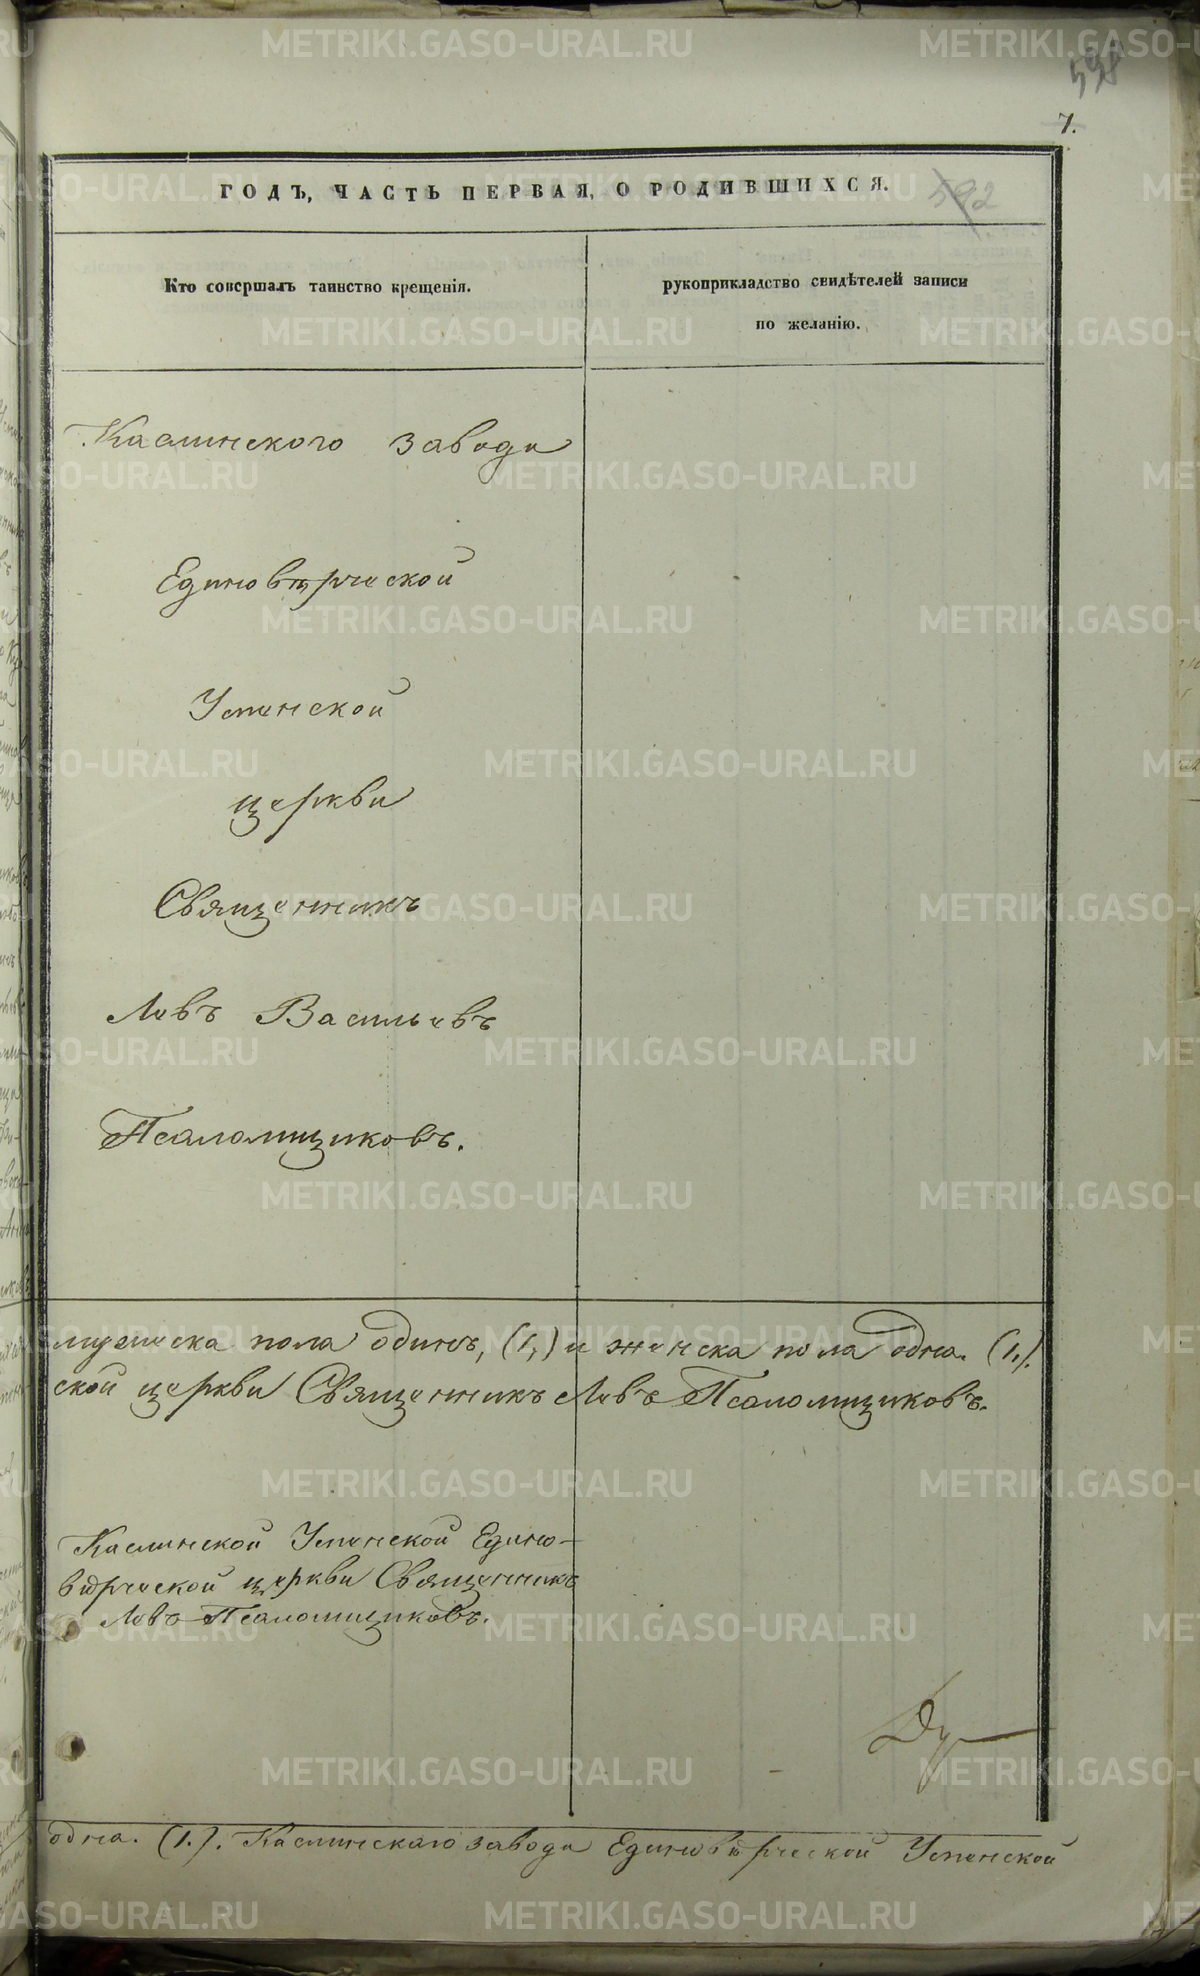 598
7.
ГОДЪ, ЧАСТЬ ПЕРВАЯ, О РОДИВШИХСЯ.
592
Кто совершалъ таинство крещенія.
рукоприкладство свидѣтелей записи
по желанію.
Каслинского завода
Единовѣрческой
Успенской
церкви
Священникъ
Левъ Васильевъ
Псаломщиковъ.
мужеска пола одинъ, (1,) и женска пола одна. (1,).
ской церкви Священникъ Левъ Псаломщиковъ.
Каслинской Успенской Едино-
вѣрческой церкви Священникъ
Левъ Псаломщиковъ.
одна. (1.). Каслинскаго завода Единовѣрческой Успенской
METRIKI.GASO-URAL.RU